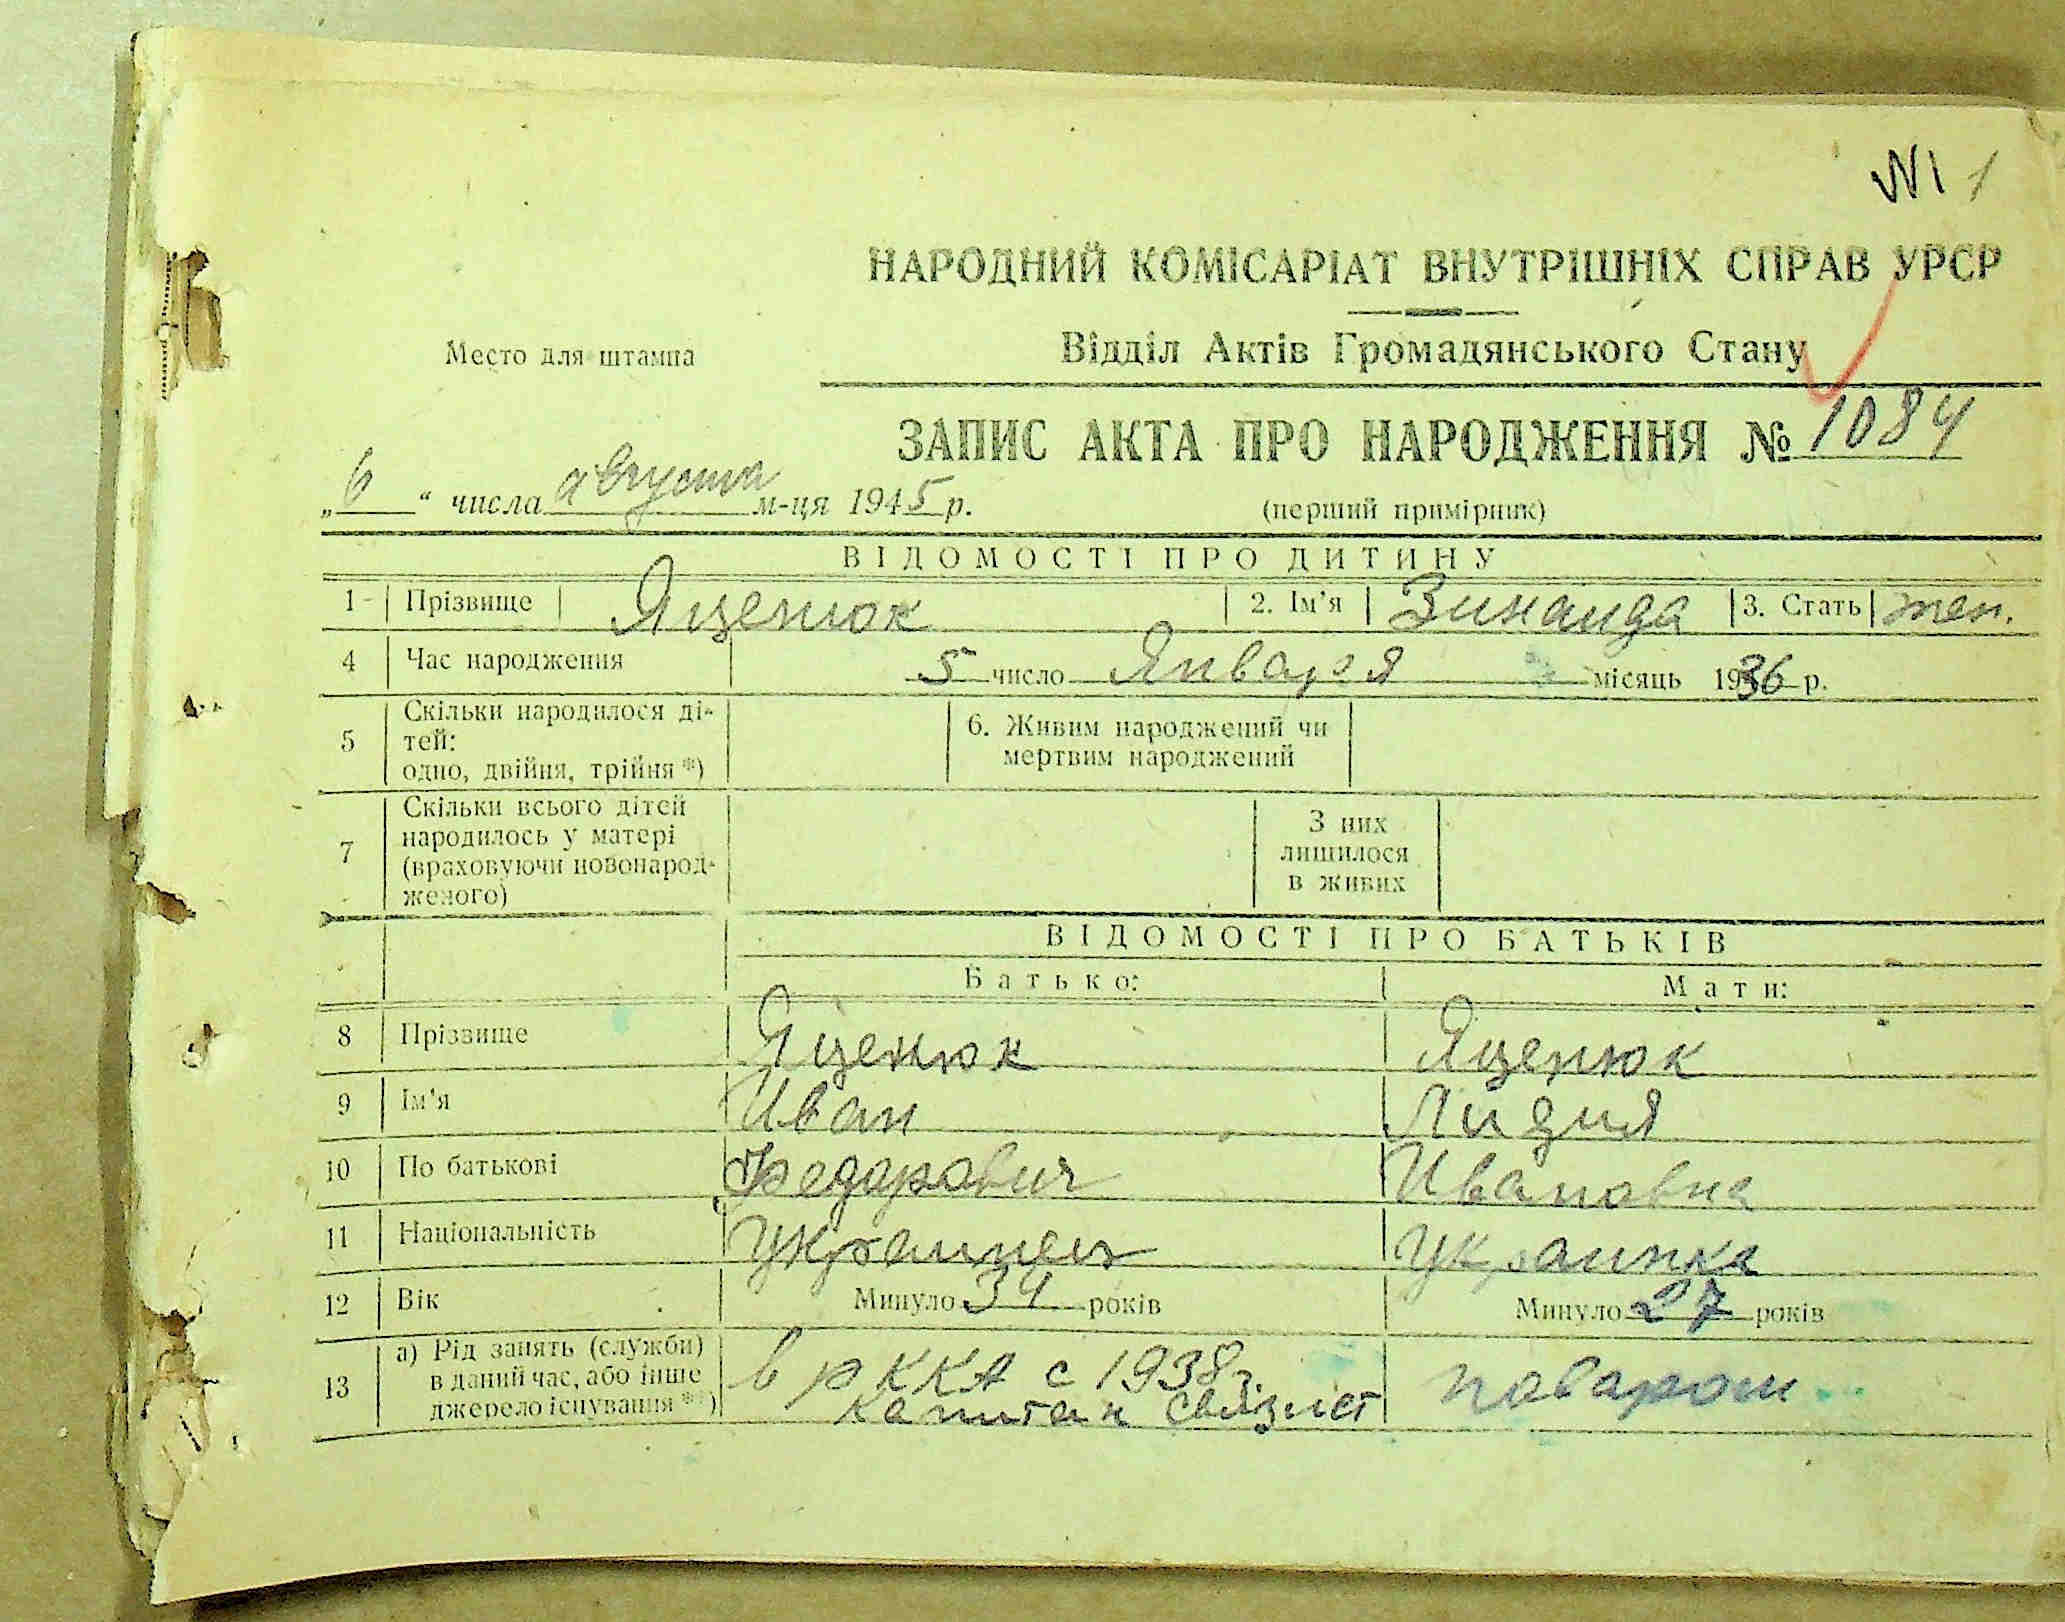 №1 1
НАРОДНИЙ КОМІСАРІАТ ВНУТРІШНІХ СПРАВ УРСР
Место для штампа
Відділ Актів Громадянського Стану
ЗАПИС АКТА ПРО НАРОДЖЕННЯ № 1084
„6“ числа августа м-ця 1945 р.
(перший примірник)
ВІДОМОСТІ ПРО ДИТИНУ
1 Прізвище Яценюк 2. Ім'я Зинаида 3. Стать жен.
4 Час народження 5 число Января місяць 1936 р.
5 Скільки народилося ді-
тей:
одно, двійня, трійня *)
6. Живим народжений чи
мертвим народжений
7 Скільки всього дітей
народилось у матері
(враховуючи новонарод-
женого)
З них
лишилося
в живих
ВІДОМОСТІ ПРО БАТЬКІВ
Батько: Мати:
8 Прізвище Яценюк Яценюк
9 Ім'я Иван Лидия
10 По батькові Федорович Ивановна
11 Національність Украинец Украинка
12 Вік Минуло 34 років Минуло 27 років
13 а) Рід занять (служби)
в даний час, або інше
джерело існування **)
в РККА с 1938 г.
капитан связист
поваром